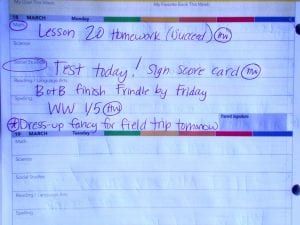 My Goal This Week My Favorite Book This Week
18 MARCH Monday
Math Lesson 20 Homework (Succeed) HW
Science
Social Studies Test today! Sign score card HW
Reading / Language Arts
BotB finish Frindle by Friday
Spelling WW V5 HW
*Dress-up fancy for field trip tomorrow
Parent Signature
19 MARCH Tuesday
Math
Science
Social Studies
Reading / Language Arts
Spelling